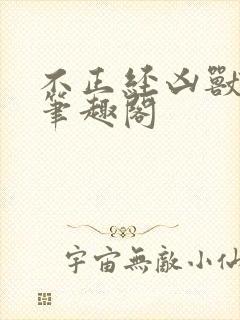 不正经凶獸
筆趣閣
宇宙無敵小仙